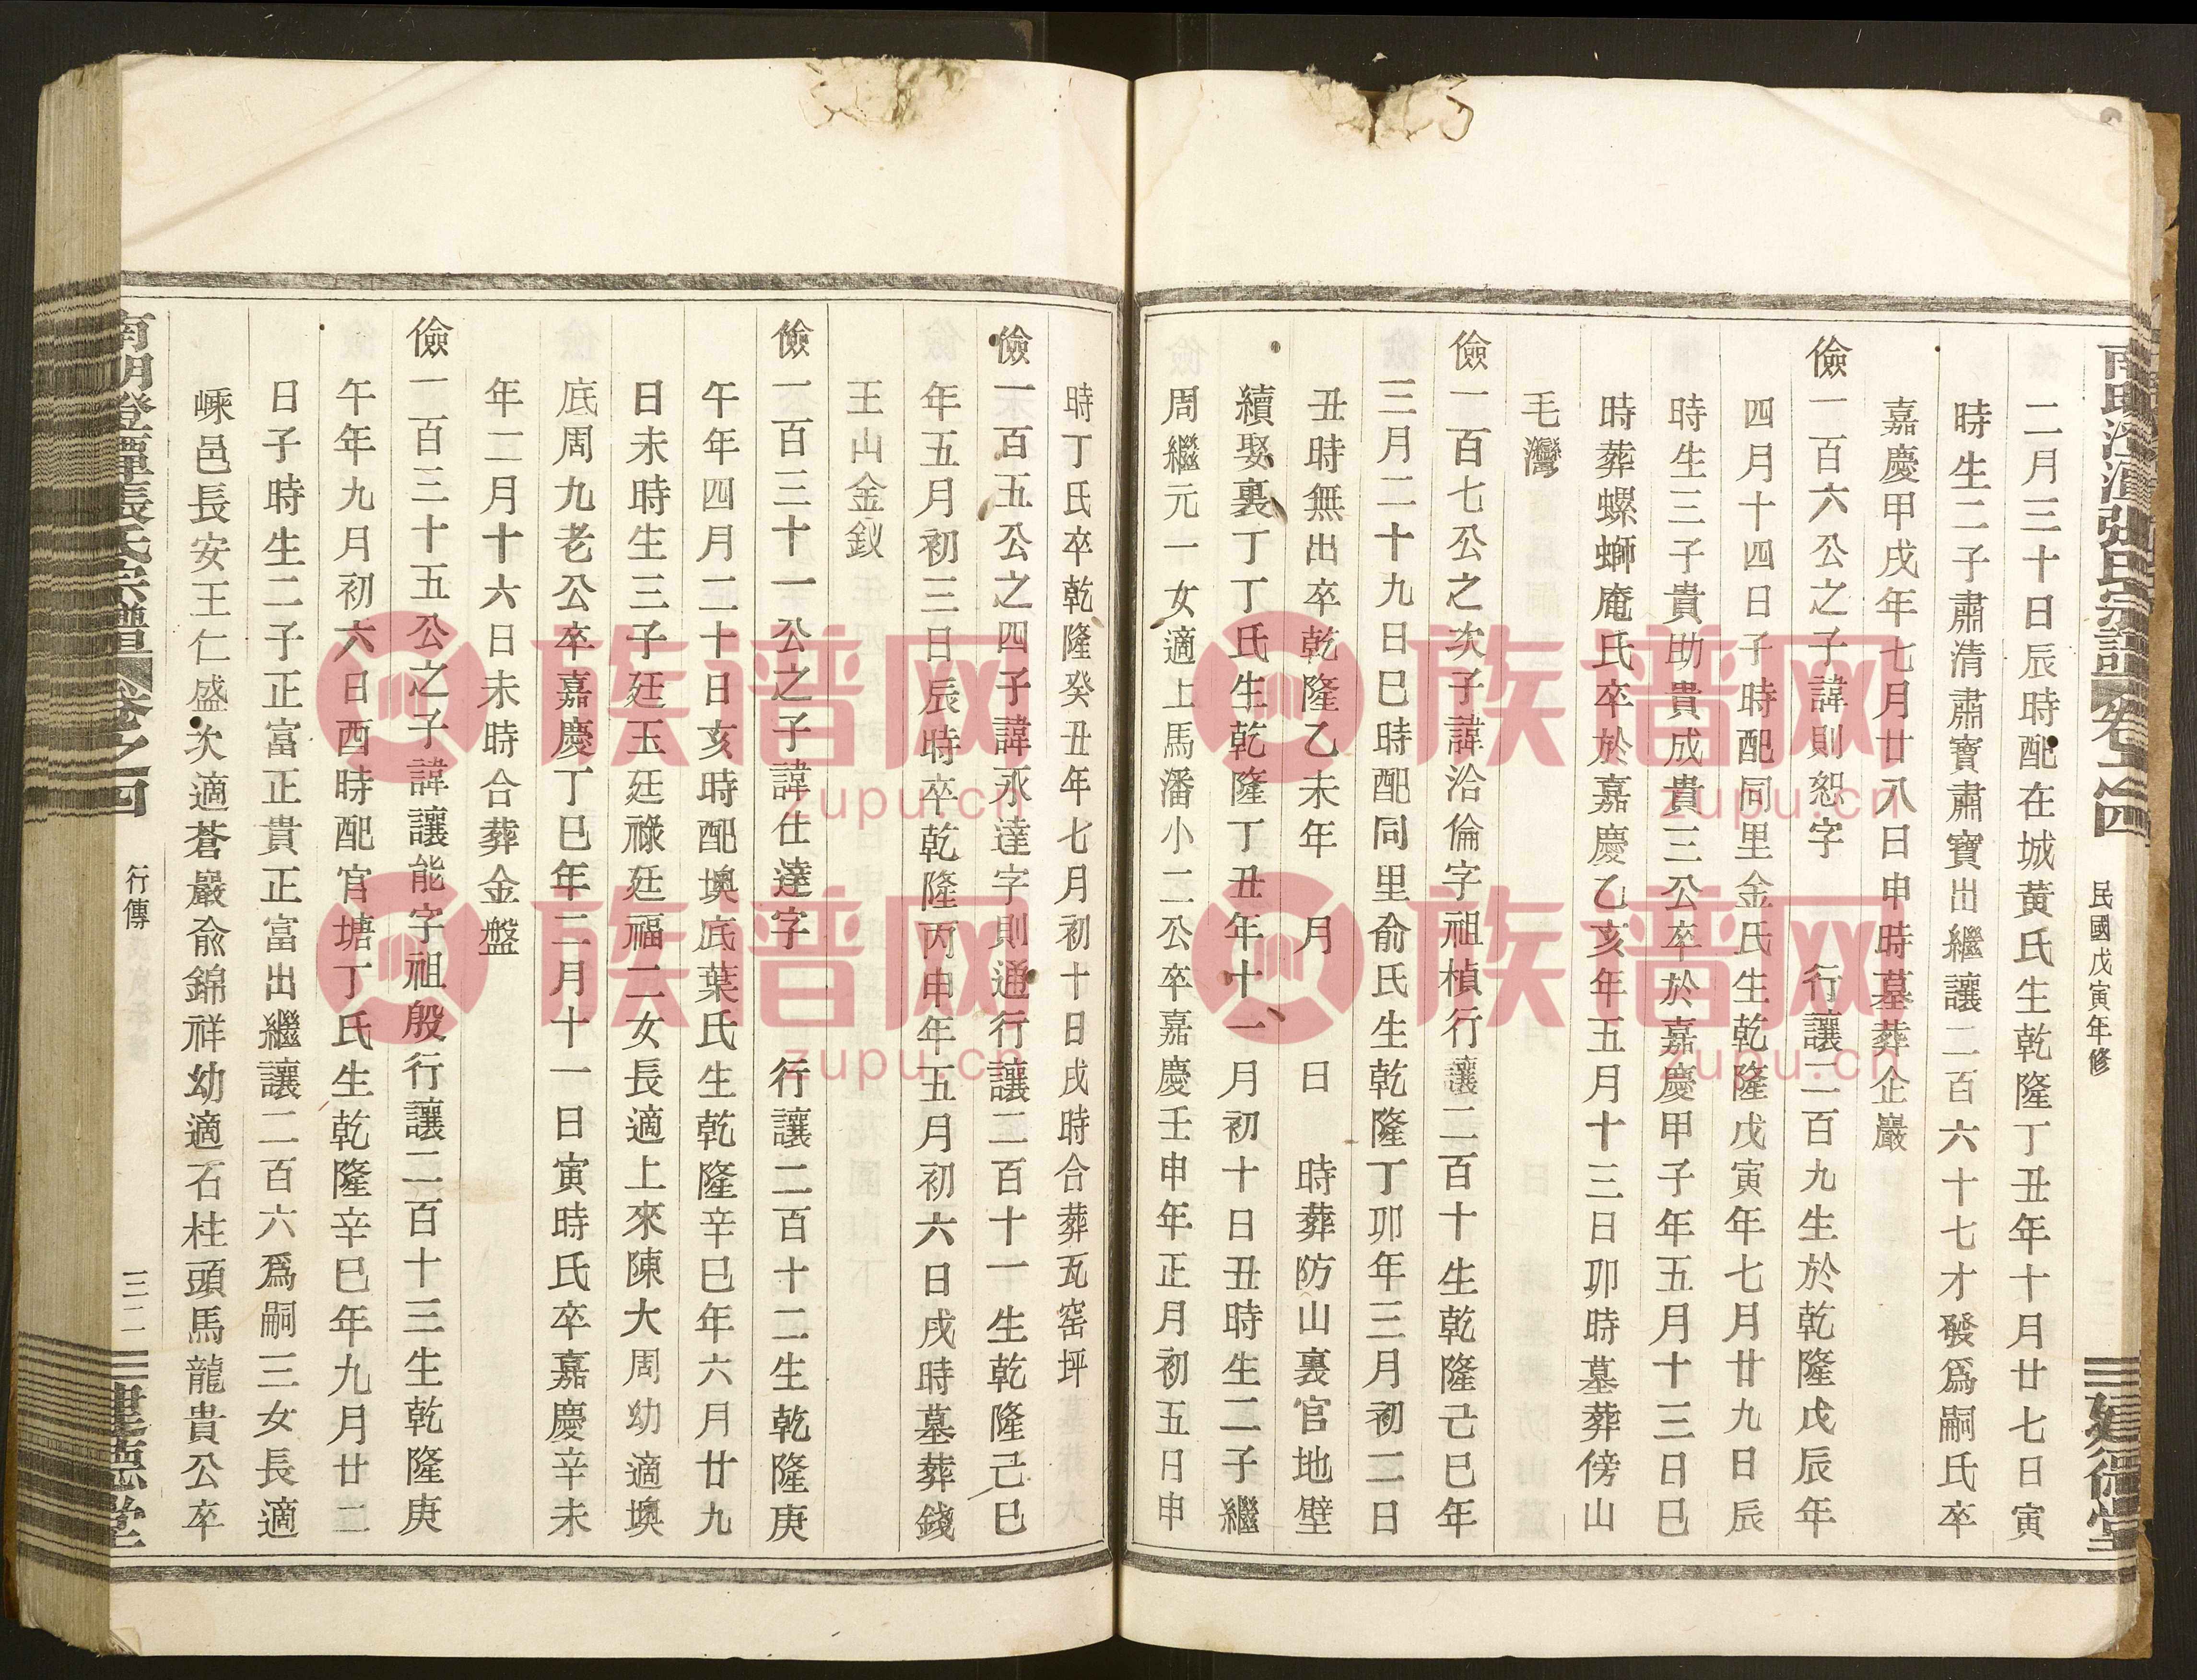 南明澄潭張氏宗譜 卷之四 民國戊寅年修 建德堂
二月三十日辰時配在城黃氏生乾隆丁丑年十月廿七日寅
時生二子肅清肅寶肅寶出繼讓二百六十七才發爲嗣氏卒
嘉慶甲戌年七月廿八日申時墓葬企巖
儉一百六公之子諱則恕字 行讓二百九生於乾隆戊辰年
四月十四日子時配同里金氏生乾隆戊寅年七月廿九日辰
時生三子貴助貴成貴三公卒於嘉慶甲子年五月十三日巳
時葬螺螄庵氏卒於嘉慶乙亥年五月十三日卯時墓葬傍山
毛灣
儉一百七公之次子諱洽倫字祖楨行讓二百十生乾隆己巳年
三月二十九日巳時配同里俞氏生乾隆丁卯年三月初二日
丑時無出卒乾隆乙未年 月 日 時葬防山裏官地壁
續娶裏丁丁氏生乾隆丁丑年十一月初十日丑時生二子繼
周繼元一女適上馬潘小二公卒嘉慶壬申年正月初五日申
時丁氏卒乾隆癸丑年七月初十日戌時合葬瓦窑坪
儉一百五公之四子諱承達字則通行讓二百十一生乾隆己巳
年五月初三日辰時卒乾隆丙申年五月初六日戌時墓葬錢
王山金釵
儉一百三十一公之子諱仕達字 行讓二百十二生乾隆庚
午年四月二十日亥時配墺底葉氏生乾隆辛巳年六月廿九
日未時生三子廷玉廷祿廷福二女長適上來陳大周幼適墺
底周九老公卒嘉慶丁巳年二月十一日寅時氏卒嘉慶辛未
年二月十六日未時合葬金盤
儉一百三十五公之子諱讓能字祖殷行讓二百十三生乾隆庚
午年九月初六日酉時配官塘丁氏生乾隆辛巳年九月廿二
日子時生二子正富正貴正富出繼讓二百六爲嗣三女長適
嵊邑長安王仁盛次適蒼巖俞錦祥幼適石柱頭馬龍貴公卒
南明澄潭張氏宗譜 卷之四 行傳 三二 建德堂